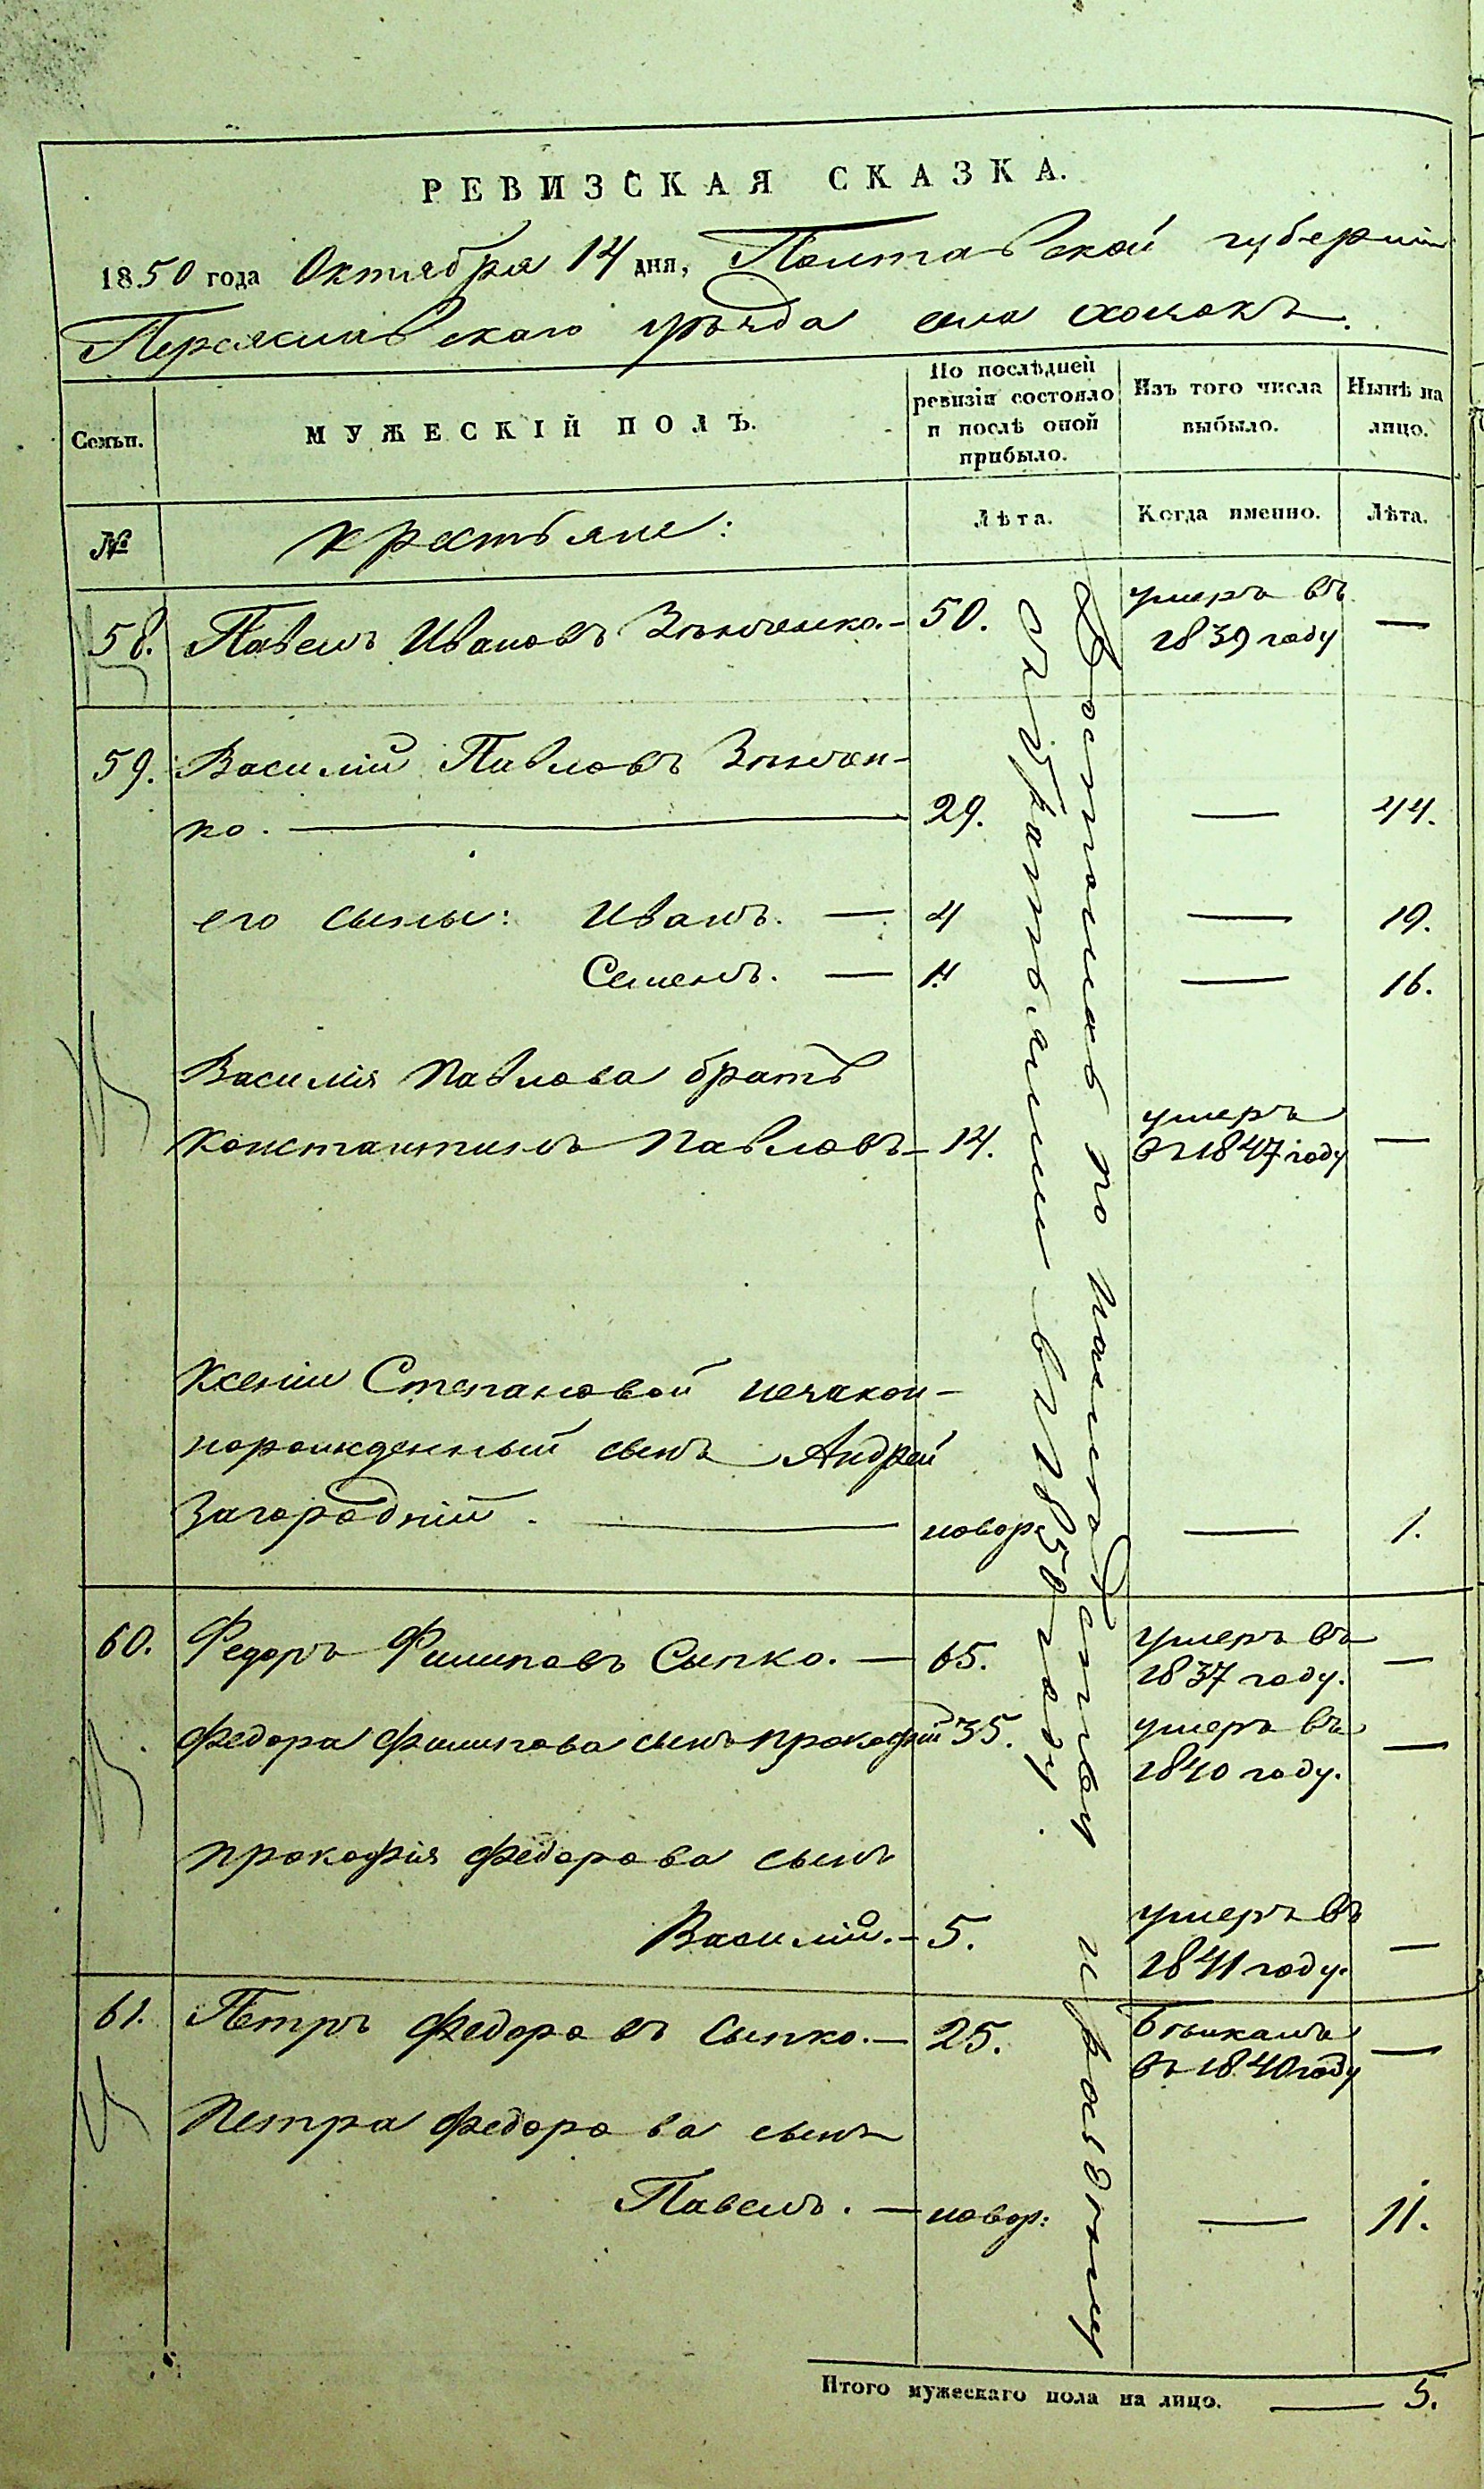 РЕВИЗСКАЯ СКАЗКА.
1850 года Октября 14 дня, Полтавской губерніи
Переяславскаго уѣзда села Хоцокъ.
Семьи.
МУЖЕСКІЙ ПОЛЪ.
По послѣдней
ревизіи состояло
и послѣ оной
прибыло.
Изъ того числа
выбыло.
Нынѣ на
лицо.
№
крестьяне:
Лѣта.
Когда именно.
Лѣта.
58. Павелъ Ивановъ Зѣнченко. — 50. умеръ въ
1839 году —
59. Василий Павловъ Зѣнчен-
ко. — 29. — 44.
его сыны: Иванъ. — 4 — 19.
Семенъ. — 1. — 16.
Василія Павлова братъ
Константинъ Павловъ — 14. умеръ
въ 1847 году —
Ксеніи Степановой незакон-
норожденный сынъ Андрей
Загородній. — новор. — 1.
60. Федоръ Филиповъ Сыпко. — 65. умеръ въ
1837 году. —
Федора Филипова сынъ Прокофій 35. умеръ въ
1840 году. —
Прокофія Федорова сынъ
Василій. — 5. умеръ въ
1841 году. —
61. Петръ Федоровъ Сыпко. — 25. бѣжалъ
въ 1840 году —
Петра Федорова сынъ
Павелъ. — новор: — 11.
Достались по наслѣдству и раздѣлу
съ братьями въ 1850 году.
Итого мужескаго пола на лицо. — 5.